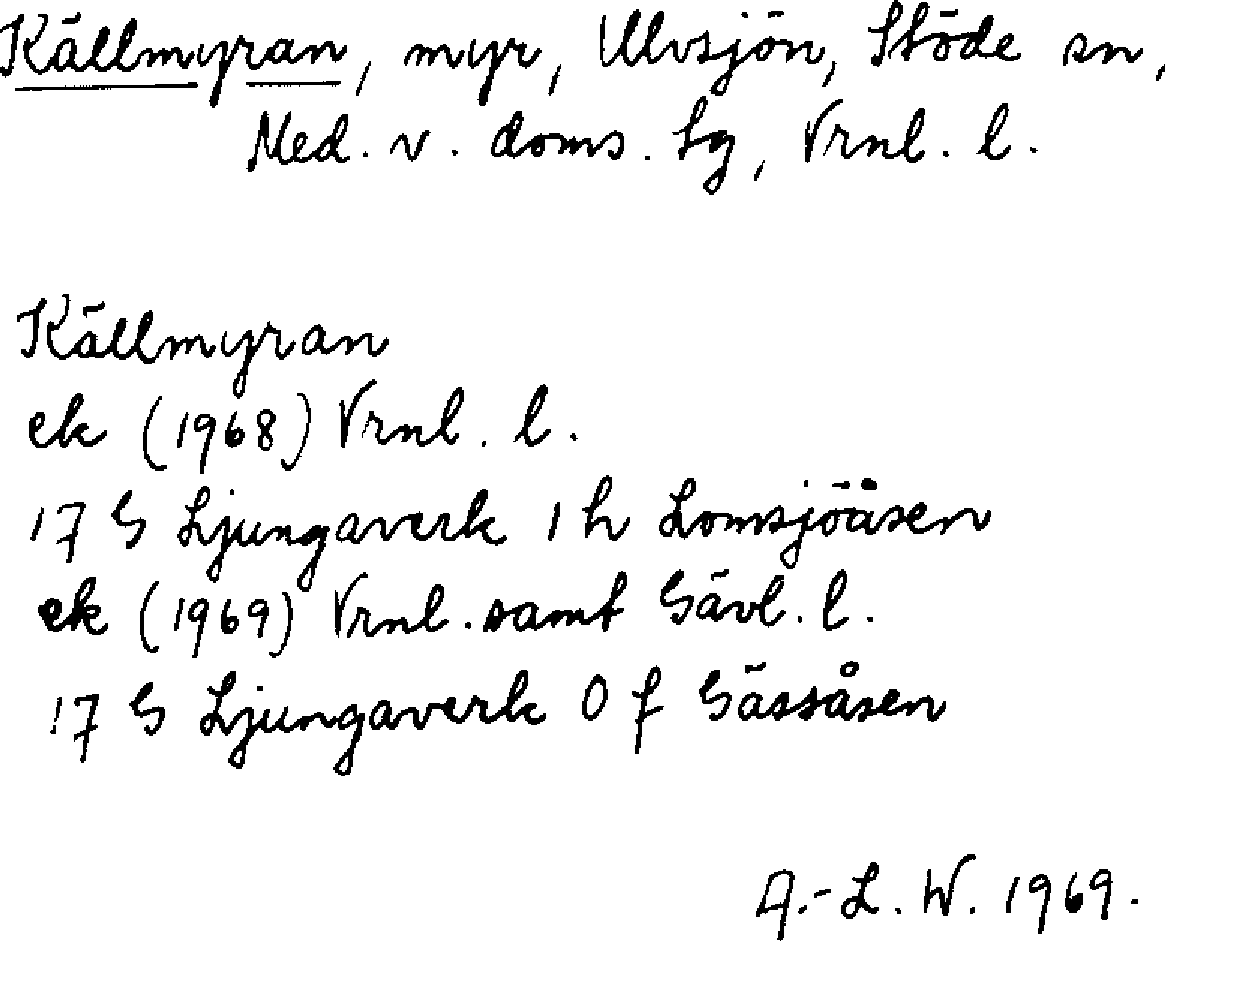 Källmyran, myr, Ulvsjön, Stöde sn,
Med. v. doms. lg, Vrnl. l.
Källmyran
ek (1968) Vrnl. l.
17 G Ljungaverk 1 h Lomsjöåsen
ek (1969) Vrnl. samt Gävl. l.
17 G Ljungaverk 0 f Gässåsen
A.-L. W. 1969.